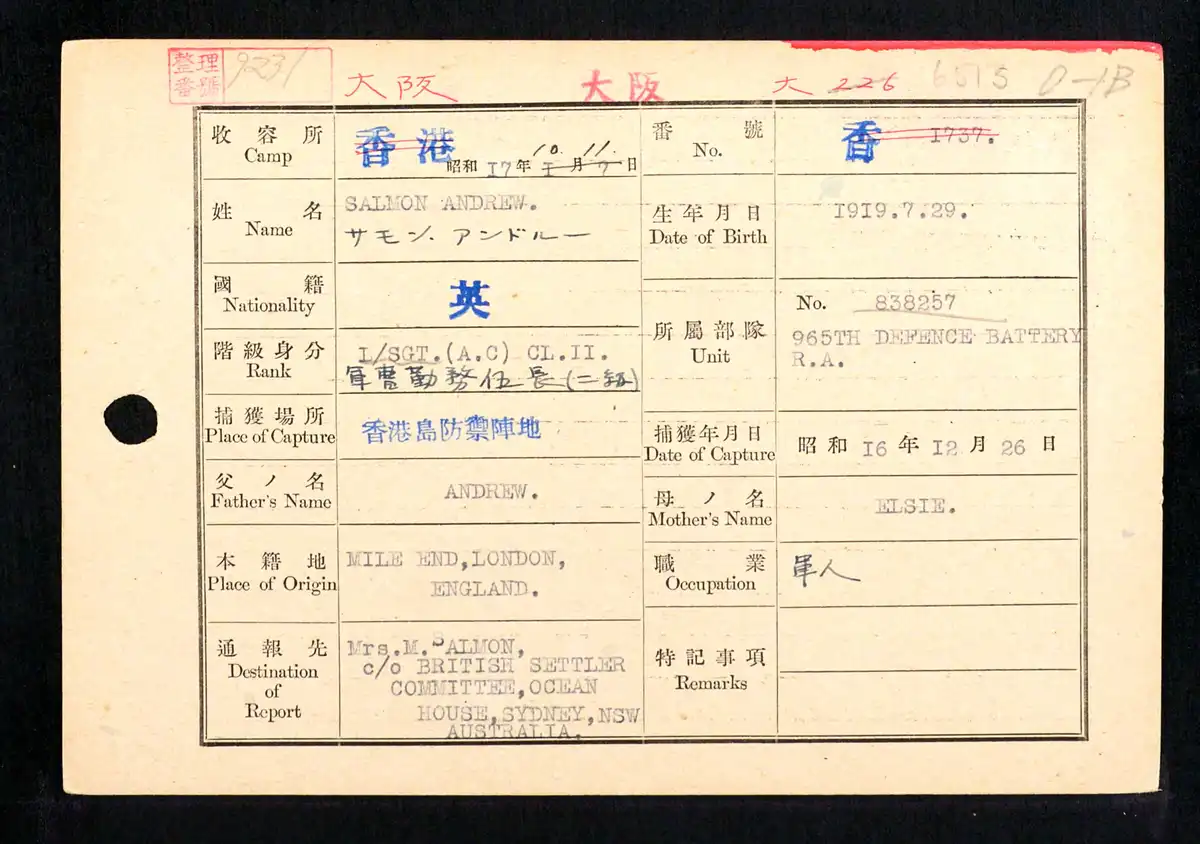 整理番號 9231
大阪 大阪 大 226 6515 0-1B
收容所 Camp
香港
10. 11.
昭和 17年 1月 7日
番號 No.
香 1737.
姓名 Name
SALMON ANDREW.
サモン. アンドルー
生年月日 Date of Birth
1919.7.29.
國籍 Nationality
英
所屬部隊 Unit
No. 838257
965TH DEFENCE BATTERY
R.A.
階級身分 Rank
I/SGT.(A.C) CL.II.
軍曹勤務伍長(二級)
捕獲場所 Place of Capture
香港島防禦陣地
捕獲年月日 Date of Capture
昭和 16年 12月 26日
父ノ名 Father's Name
ANDREW.
母ノ名 Mother's Name
ELSIE.
本籍地 Place of Origin
MILE END,LONDON,
ENGLAND.
職業 Occupation
軍人
通報先 Destination of Report
Mrs.M.SALMON,
c/o BRITISH SETTLER
COMMITTEE,OCEAN
HOUSE,SYDNEY,NSW
AUSTRALIA.
特記事項 Remarks